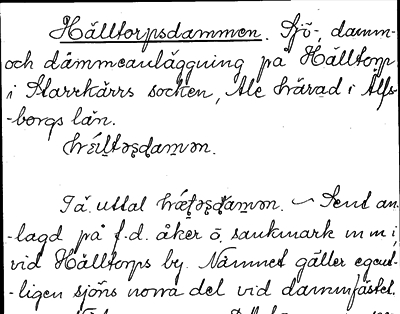 Hålltorpsdammen. Sjö-, damm-
och dämmeanläggning på Hålltorp
i Starrkärrs socken, Ale härad i Älfs-
-borgs län.
Få. uttal Sent an-
-lagd på f.d. åker o. sankmark m m i,
vid Hålltorps by. Namnet gäller egent-
-ligen sjöns norra del vid dammfästet.